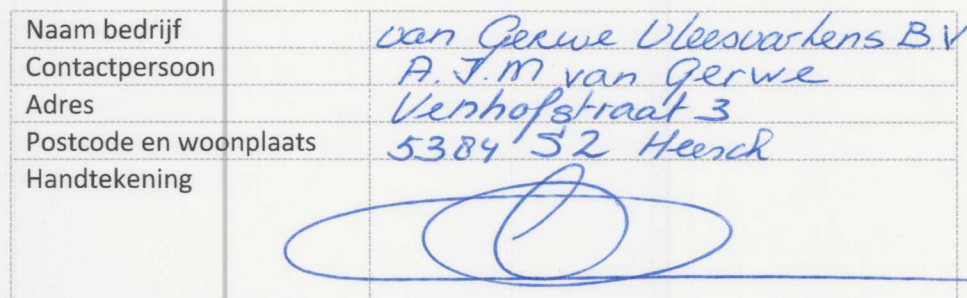 Naam bedrijf van Gerwe Vleesvarkens B.V
Contactpersoon A.J.M van Gerwe
Adres Venhofstraat 3
Postcode en woonplaats 5384 SZ Heesch
Handtekening